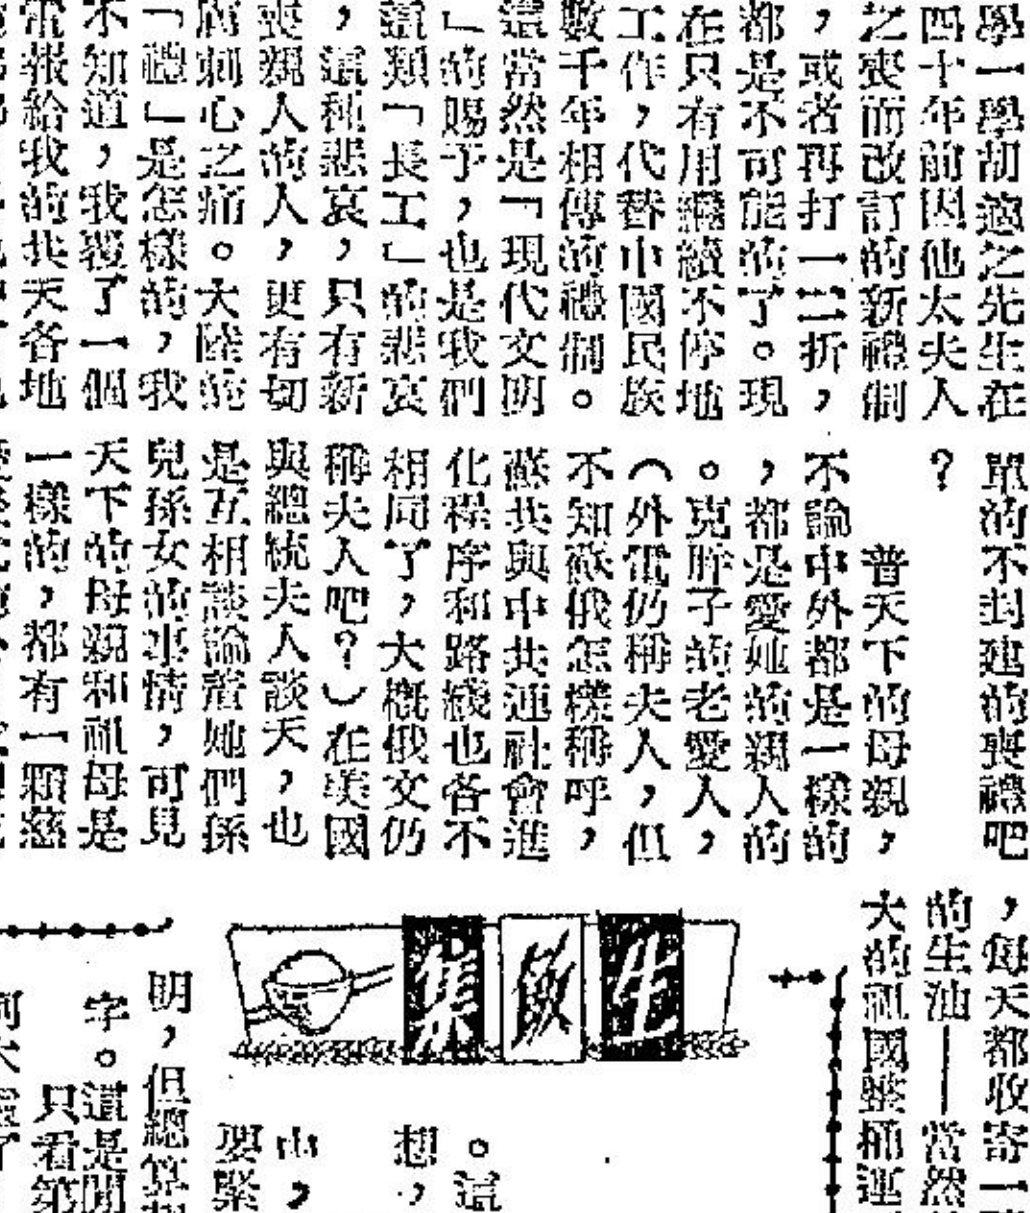 學一學胡適之先生在
四十年前因他太夫人
之喪而改訂的新禮制
,或者再打一二折,
都是不可能的了。現
在只有用繼續不停地
工作,代替中國民族
數千年相傳的禮制。
這當然是「現代文明
」的賜予,也是我們
這類「長工」的悲哀
,這種悲哀,只有新
喪親人的人,更有切
膚刺心之痛。大陸的
「禮」是怎樣的,我
不知道,我發了一個
電報給我的共天各地
單的不封建的喪禮吧
?
普天下的母親,
不論中外都是一樣的
,都是愛她的親人的
。克胖子的老愛人,
(外電仍稱夫人,但
不知蘇俄怎樣稱呼,
蘇共與中共連社會進
化程序和路綫也各不
相同了,大概俄文仍
稱夫人吧?)在美國
與總統夫人談天,也
是互相談論着她們孫
兒孫女的事情,可見
天下的母親和祖母是
一樣的,都有一顆慈
,每天都收寄一
的生油——當然
大的祖國整桶運
生飲集
。這
想,
由,
要緊
明,但總算
字。這是開
只看第